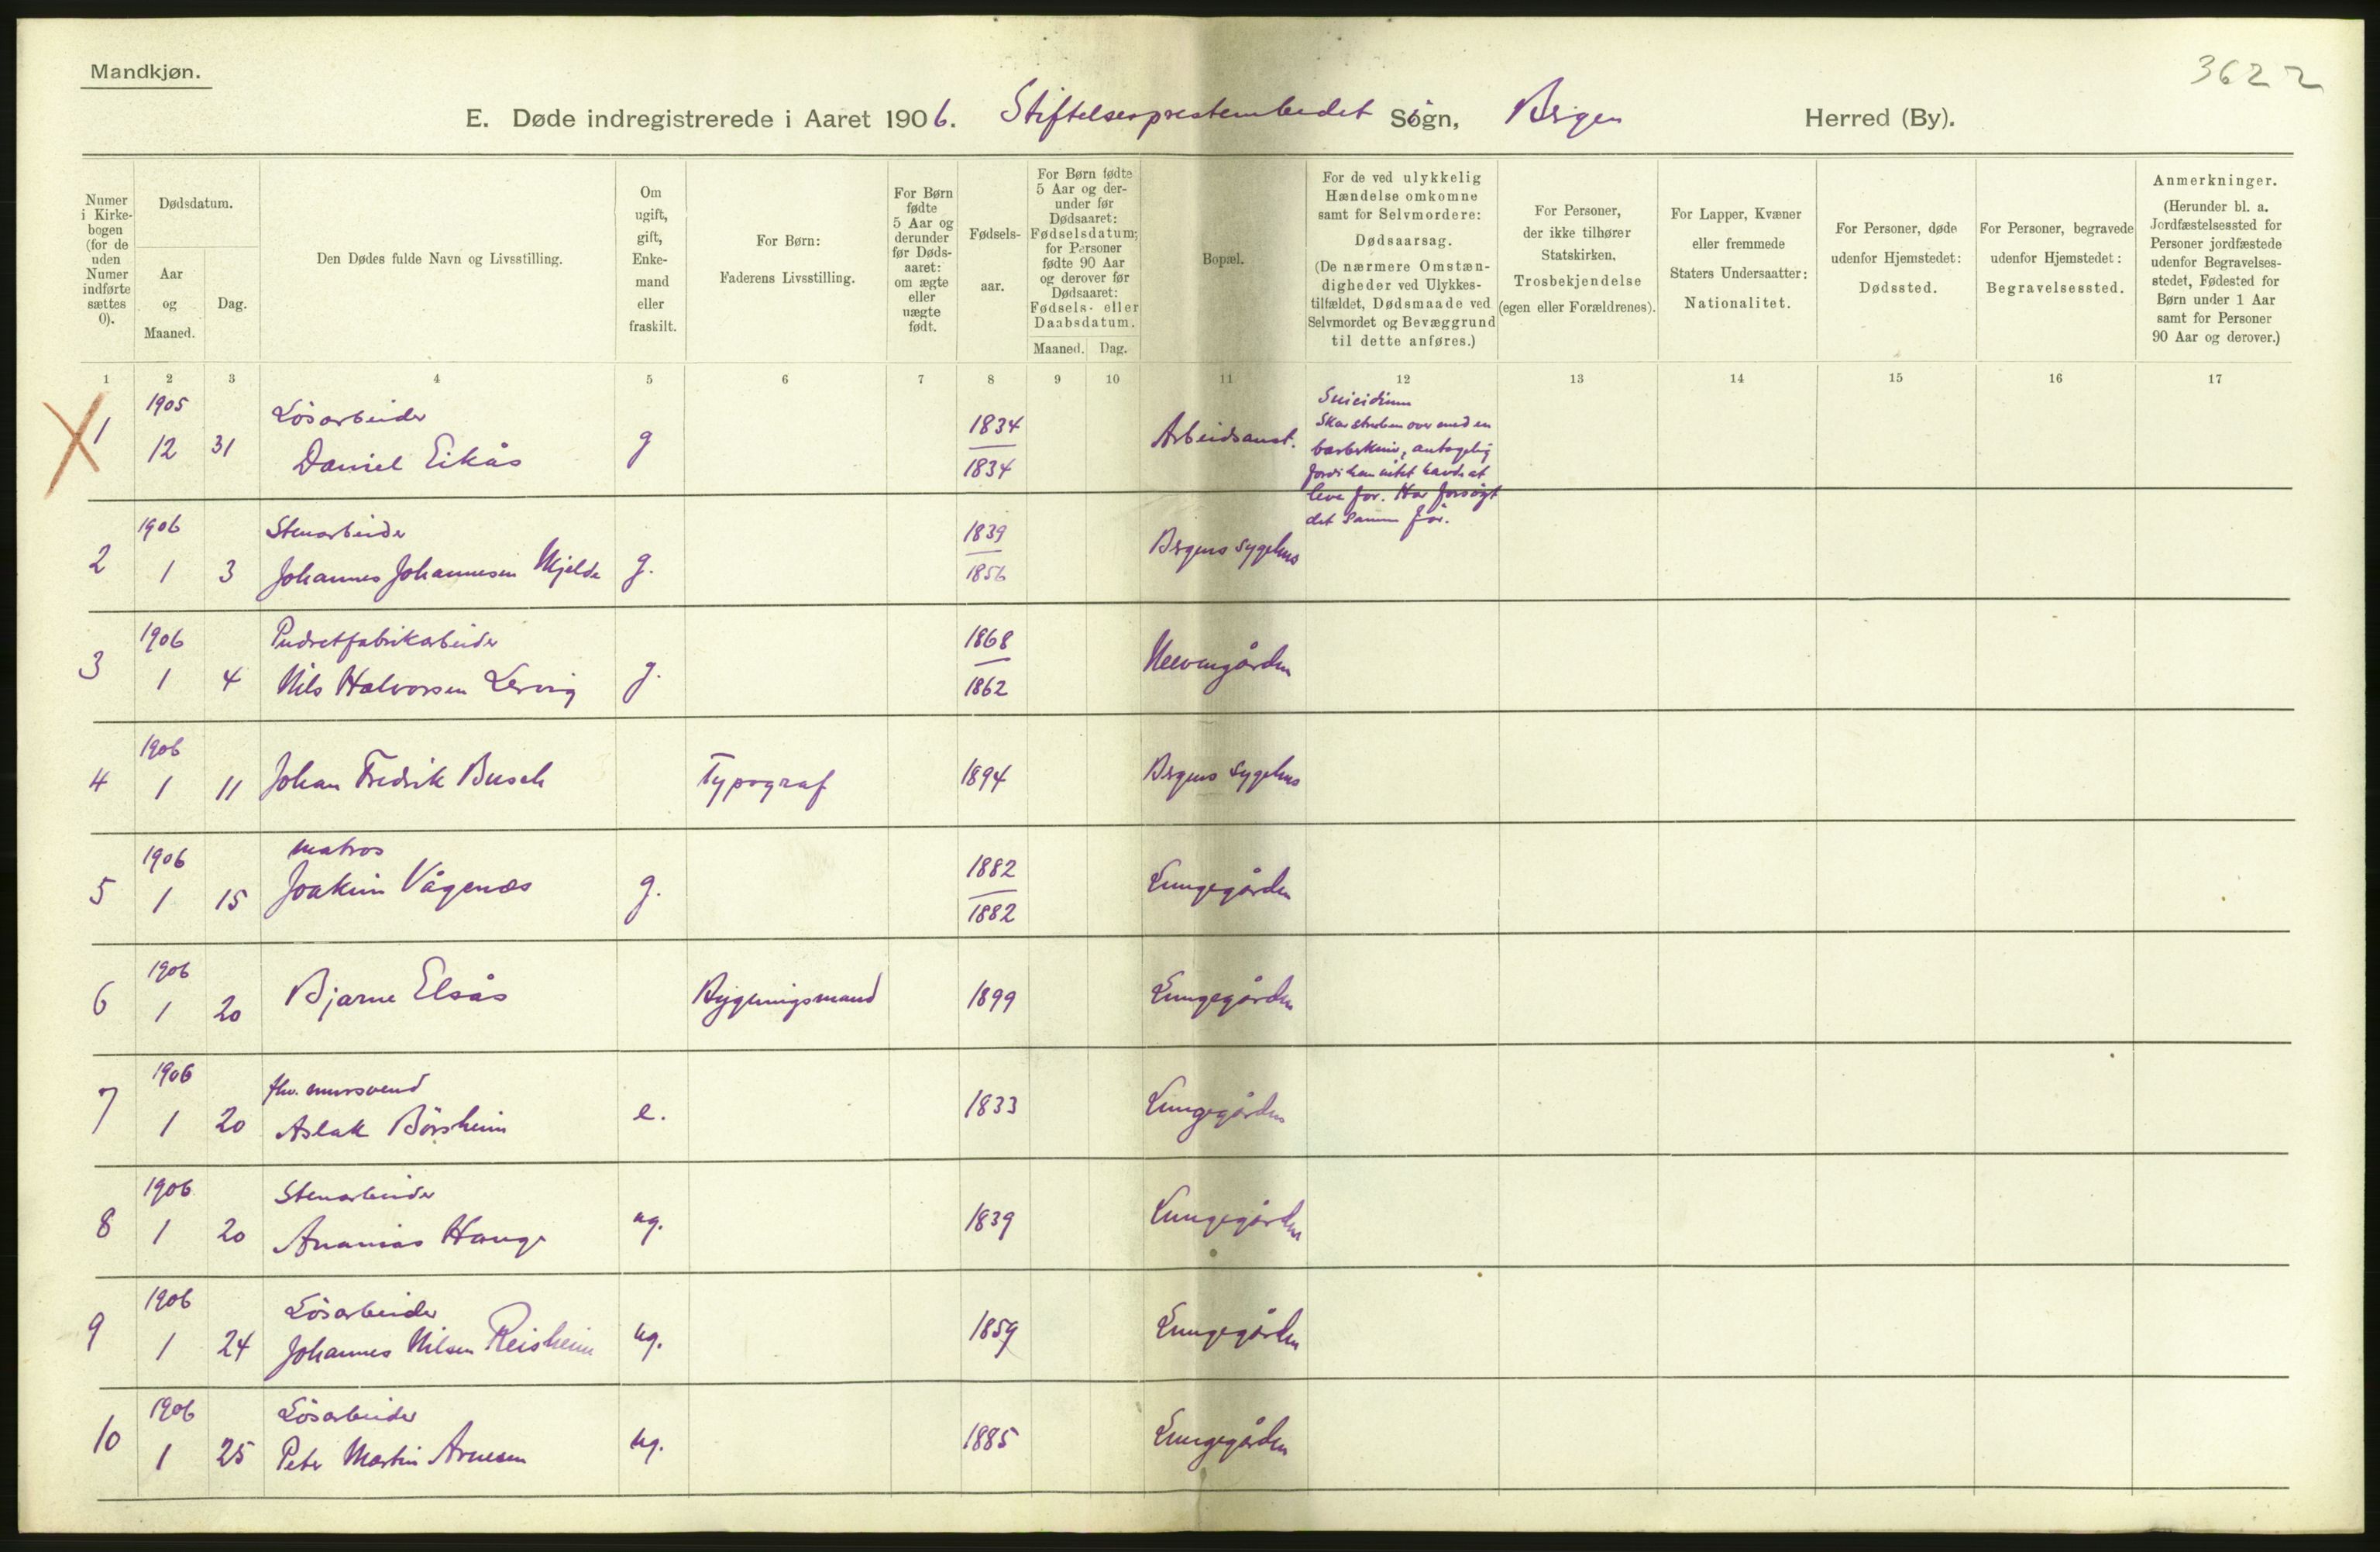 Mandkjøn.
3622
E. Døde indregistrerede i Aaret 1906. Stiftelsesprestembedet Sogn, Bergen Herred (By).
Numer i Kirke-bogen (for de uden Numer indførte sættes 0).
Dødsdatum.
Aar og Maaned.
Dag.
Den Dødes fulde Navn og Livsstilling.
Om ugift, gift, Enke-mand eller fraskilt.
For Børn:
Faderens Livsstilling.
For Børn fødte 5 Aar og derunder før Døds-aaret: om ægte eller uægte født.
Fødsels-aar.
For Børn fødte 5 Aar og der-under før Dødsaaret: Fødselsdatum; for Personer fødte 90 Aar og derover før Dødsaaret: Fødsels- eller Daabsdatum.
Maaned. Dag.
Bopæl.
For de ved ulykkelig Hændelse omkomne samt for Selvmordere: Dødsaarsag. (De nærmere Omstæn-digheder ved Ulykkes-tilfældet, Dødsmaade ved Selvmordet og Bevæggrund til dette anføres.)
For Personer, der ikke tilhører Statskirken, Trosbekjendelse (egen eller Forældrenes).
For Lapper, Kvæner eller fremmede Staters Undersaatter: Nationalitet.
For Personer, døde udenfor Hjemstedet: Dødssted.
For Personer, begravede udenfor Hjemstedet: Begravelsessted.
Anmerkninger. (Herunder bl. a. Jordfæstelsessted for Personer jordfæstede udenfor Begravelses-stedet, Fødested for Børn under 1 Aar samt for Personer 90 Aar og derover.)
1 2 3 4 5 6 7 8 9 10 11 12 13 14 15 16 17
1905 Lösarbeider
1 12 31 Daniel Eikås g 1834 1834 Arbeidsanst.
Suicidium
Skar struben over med en
barberkniv, antagelig
fordi han intet havde at
leve for. Har forsögt
det samme för.
1906 Stenarbeider
2 1 3 Johannes Johannesen Mjelde g. 1839 1856 Bergens sygehus
1906 Pudretfabrikarbeider
3 1 4 Nils Halvorsen Lervig g. 1868 1862 Neevengården
1906
4 1 11 Johan Fredrik Busch Typograf 1894 Bergens sygehus
1906 matros
5 1 15 Joakim Vågenæs g. 1882 1882 Lungegården
1906
6 1 20 Bjarne Elsås Bygningsmand 1899 Lungegården
1906 fhv. mursvend
7 1 20 Aslak Börsheim e. 1833 Lungegården
1906 Stenarbeider
8 1 20 Ananias Hauge ug. 1839 Lungegården
1906 Lösarbeider
9 1 24 Johannes Nilsen Reisheim ug. 1859 Lungegården
1906 Lösarbeider
10 1 25 Peter Martin Arnesen ug. 1885 Lungegården